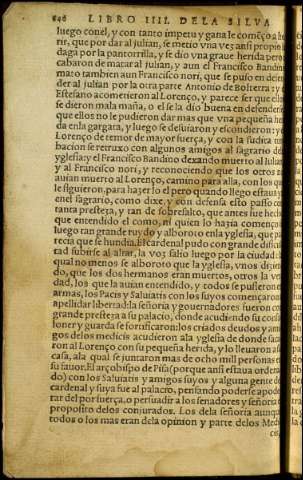 646 LIBRO IIII. DE LA SILVA
luego conel, y con tanto impetu y gana le començo a he
rir, que por dar al julian, se metio vna vez ansi propio
daga por la pantorrilla, y se dio vna graue herida pero
cabaron de matar al julian, y aun el Francisco Bandi
mato tambien aun Francisco nori, que se puso en defen
der al julian por la otra parte Antonio de Bolterra y
Estefano acometieron al Lorenço, y parece ser que ellos
se dieron mala maña, o el se la dio buena en defenderse
que ellos no le pudieron dar mas que vna pequeña heri
da enla gargata, y luego se desuiaron y escondieron: y
Lorenço de temor de mayor fuerça, y con la subita tur
bacion se retruxo con algunos amigos al sagrario de
yglesia: y el Francisco Bandino dexando muerto al Julian
y al Francisco nori, y reconociendo que los otros no
auian muerto al Lorenço, camino para alla, con los que
le siguieron, para hazer lo el pero quando llego estaua
enel sagrario, como dixe, y con defensa esto passo con
tanta presteza, y tan de sobresalto, que antes fue hecho
que entendido el como, ni quien lo hazia començose
luego tan grande ruydo y alboroto enla yglesia, que pa
recia que se hundia. El cardenal pudo con grande dificul
tad subirse al altar, la voz salio luego por la ciudad: la
qual no menos se alboroto que la yglesia, vnos dizien
do, que los dos hermanos eran muertos, otros la ver
dad, los que la auian entendido, y todos se pusieron
armas, los Pacis y Saluiatis con los suyos començaron
apellidar libertad: la señoria y gouernadores fueron con
grande presteza a su palacio, donde acudiendo su confa
loner y guarda se fortificaron: los criados deudos y ami
gos delos medicis acudieron ala yglesia de donde saca
ron al Lorenço con su pequeña herida, y lo lleuaron a su
casa, ala qual se juntaron mas de ocho mil personas en
su fauor. El arçobispo de Pisa (porque ansi estaua ordena
do) con los Saluiatis y amigos suyos y alguna gente del
cardenal y suya fue al palacio, pensando poderse apode
rar del por fuerça, o persuadir a los senadores y señoria
proposito delos conjurados. Los dela señoria aunque
todos o los mas eran dela opinion y parte delos Medi